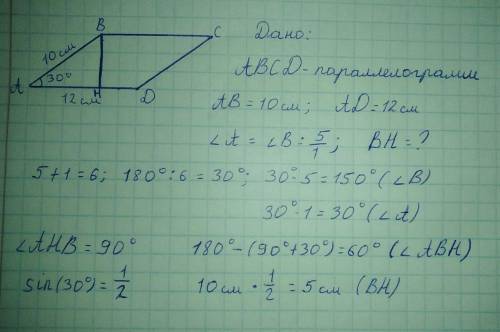 B
C
10см
30°
A
12 см
H
D
Дано:
ABCD-параллелограмм
AB = 10 см; AD = 12 см
∠A = ∠B : 5/1; BH = ?
5 + 1 = 6; 180° : 6 = 30°; 30° · 5 = 150° (∠B)
30° · 1 = 30° (∠A)
∠AHB = 90°
180° - (90° + 30°) = 60° (∠ABH)
sin(30°) = 1/2
10 см · 1/2 = 5 см (BH)